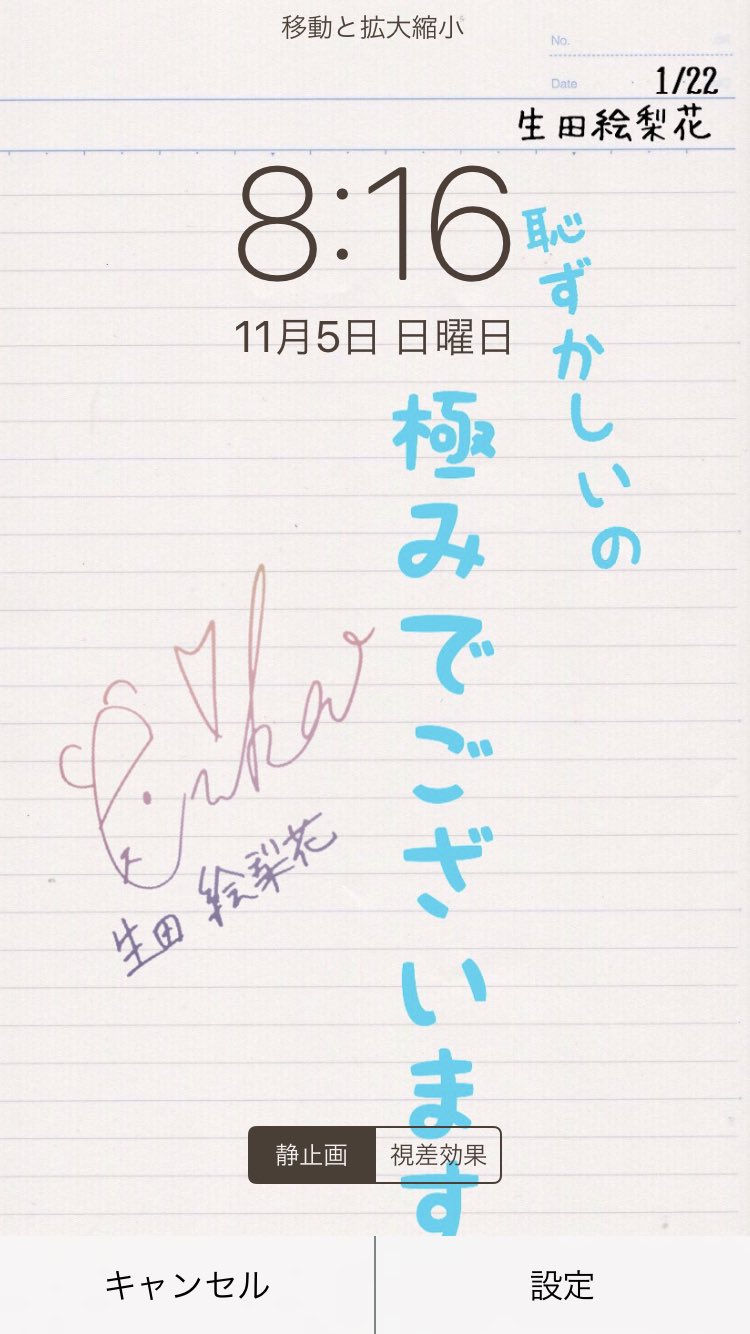 移動と拡大縮小
No.
Date
1/22
生田絵梨花
8:16
11月5日 日曜日
恥ずかしいの
極みでございます
Erika
生田 絵梨花
静止画
視差効果
キャンセル
設定